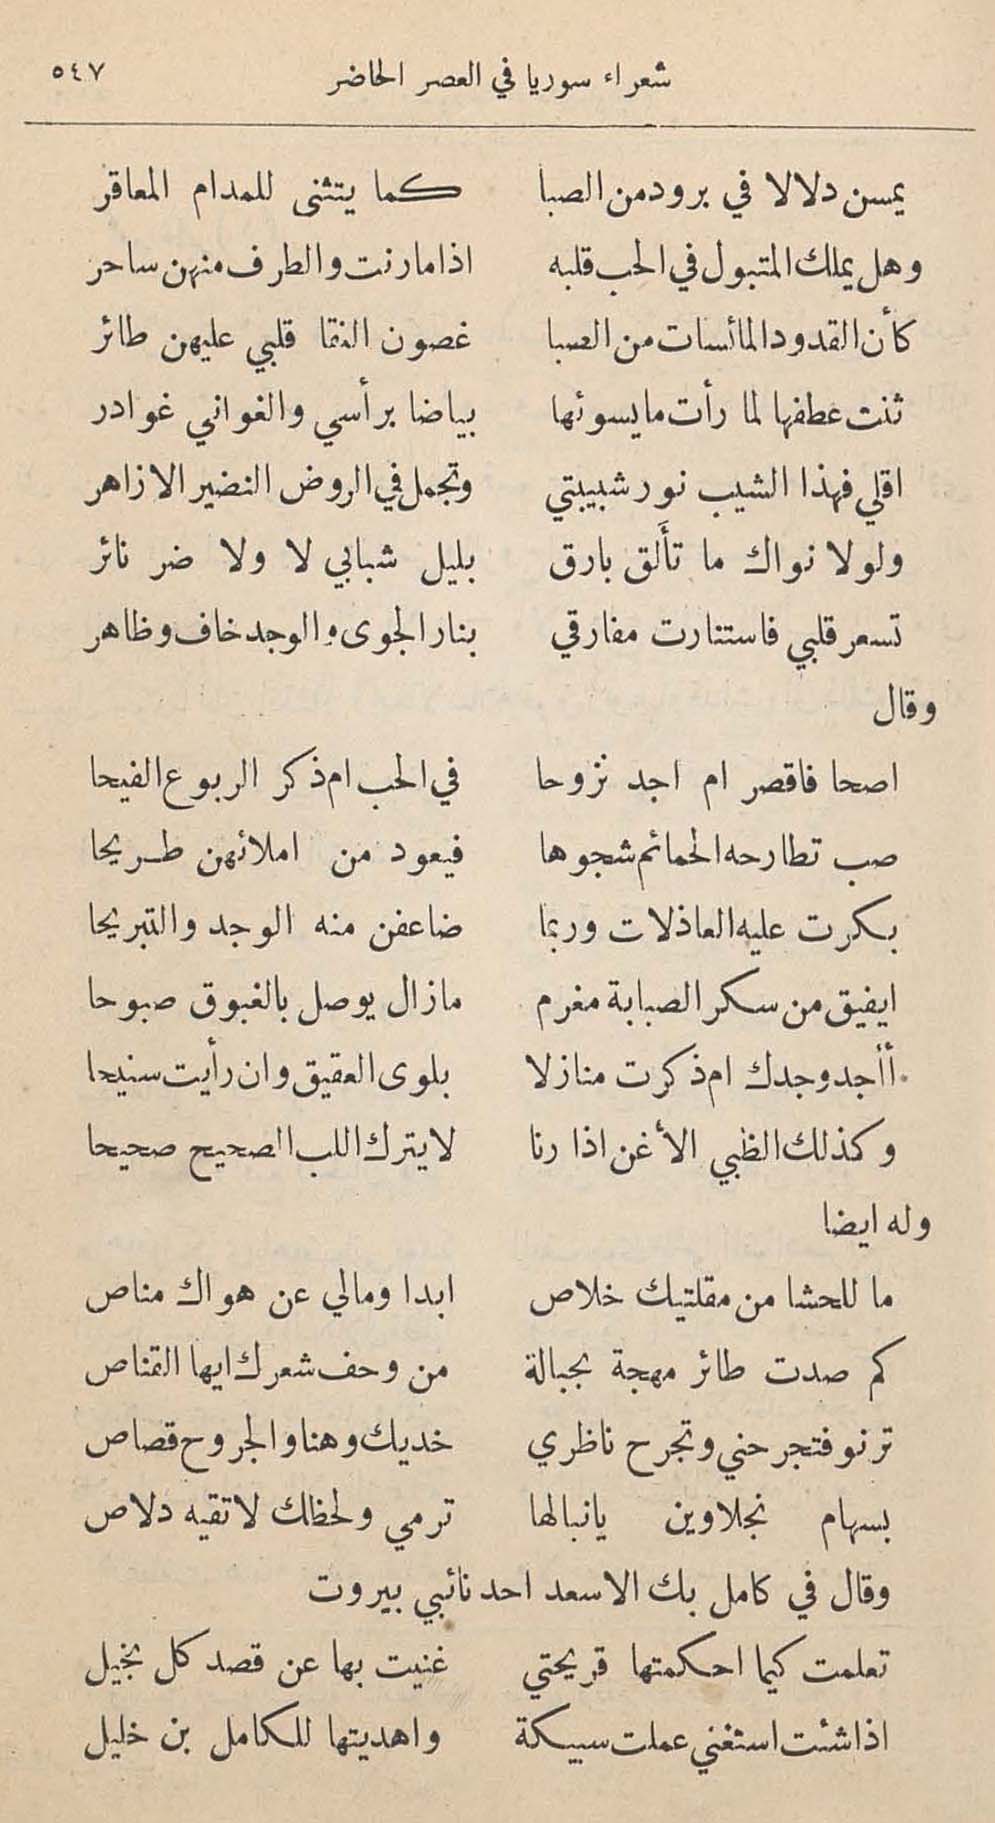 شعراء سوريا في العصر الحاضر ٥٤٧
يمسن دلالا في برود من الصبا كما يتثنى للمدام المعاقر
وهل يملك المتبول في الحب قلبه اذا ما رنت والطرف منهن ساحر
كأن القدود المائسات من الصبا غصون النقا قلبي عليهن طائر
ثنت عطفها لما رأت ما يسوئها بياضا برأسي والغواني غوادر
اقلي فهذا الشيب نور شبيبتي وتجمل في الروض النضير الازاهر
ولولا نواك ما تألق بارق بليل شبابي لا ولا ضر نائر
تسعر قلبي فاستنارت مفارقي بنار الجوى والوجد خاف وظاهر
وقال
اصحا فاقصر ام اجد نزوحا في الحب ام ذكر الربوع الفيحا
صب تطارحه الحمائم شجوها فيعود من املائهن طريحا
بكرت عليه العاذلات وربما ضاعفن منه الوجد والتبريحا
ايفيق من سكر الصبابة مغرم مازال يوصل بالغبوق صبوحا
أأجد وجدك ام ذكرت منازلا بلوى العقيق وان رأيت سنيحا
وكذلك الظبي الأغن اذا رنا لا يترك اللب الصحيح صحيحا
وله ايضا
ما للحشا من مقلتيك خلاص ابدا ومالي عن هواك مناص
كم صدت طائر مهجة بحبالة من وحف شعرك ايها القناص
ترنو فتجرحني وتجرح ناظري خديك وهنا والجروح قصاص
بسهام نجلاوين يا نبالها ترمي ولحظك لا تقيه دلاص
وقال في كامل بك الاسعد احد نائبي بيروت
تعلمت كيما احكمتها قريحتي غنيت بها عن قصد كل بخيل
اذا شئت استغني عملت سبيكة واهديتها للكامل بن خليل